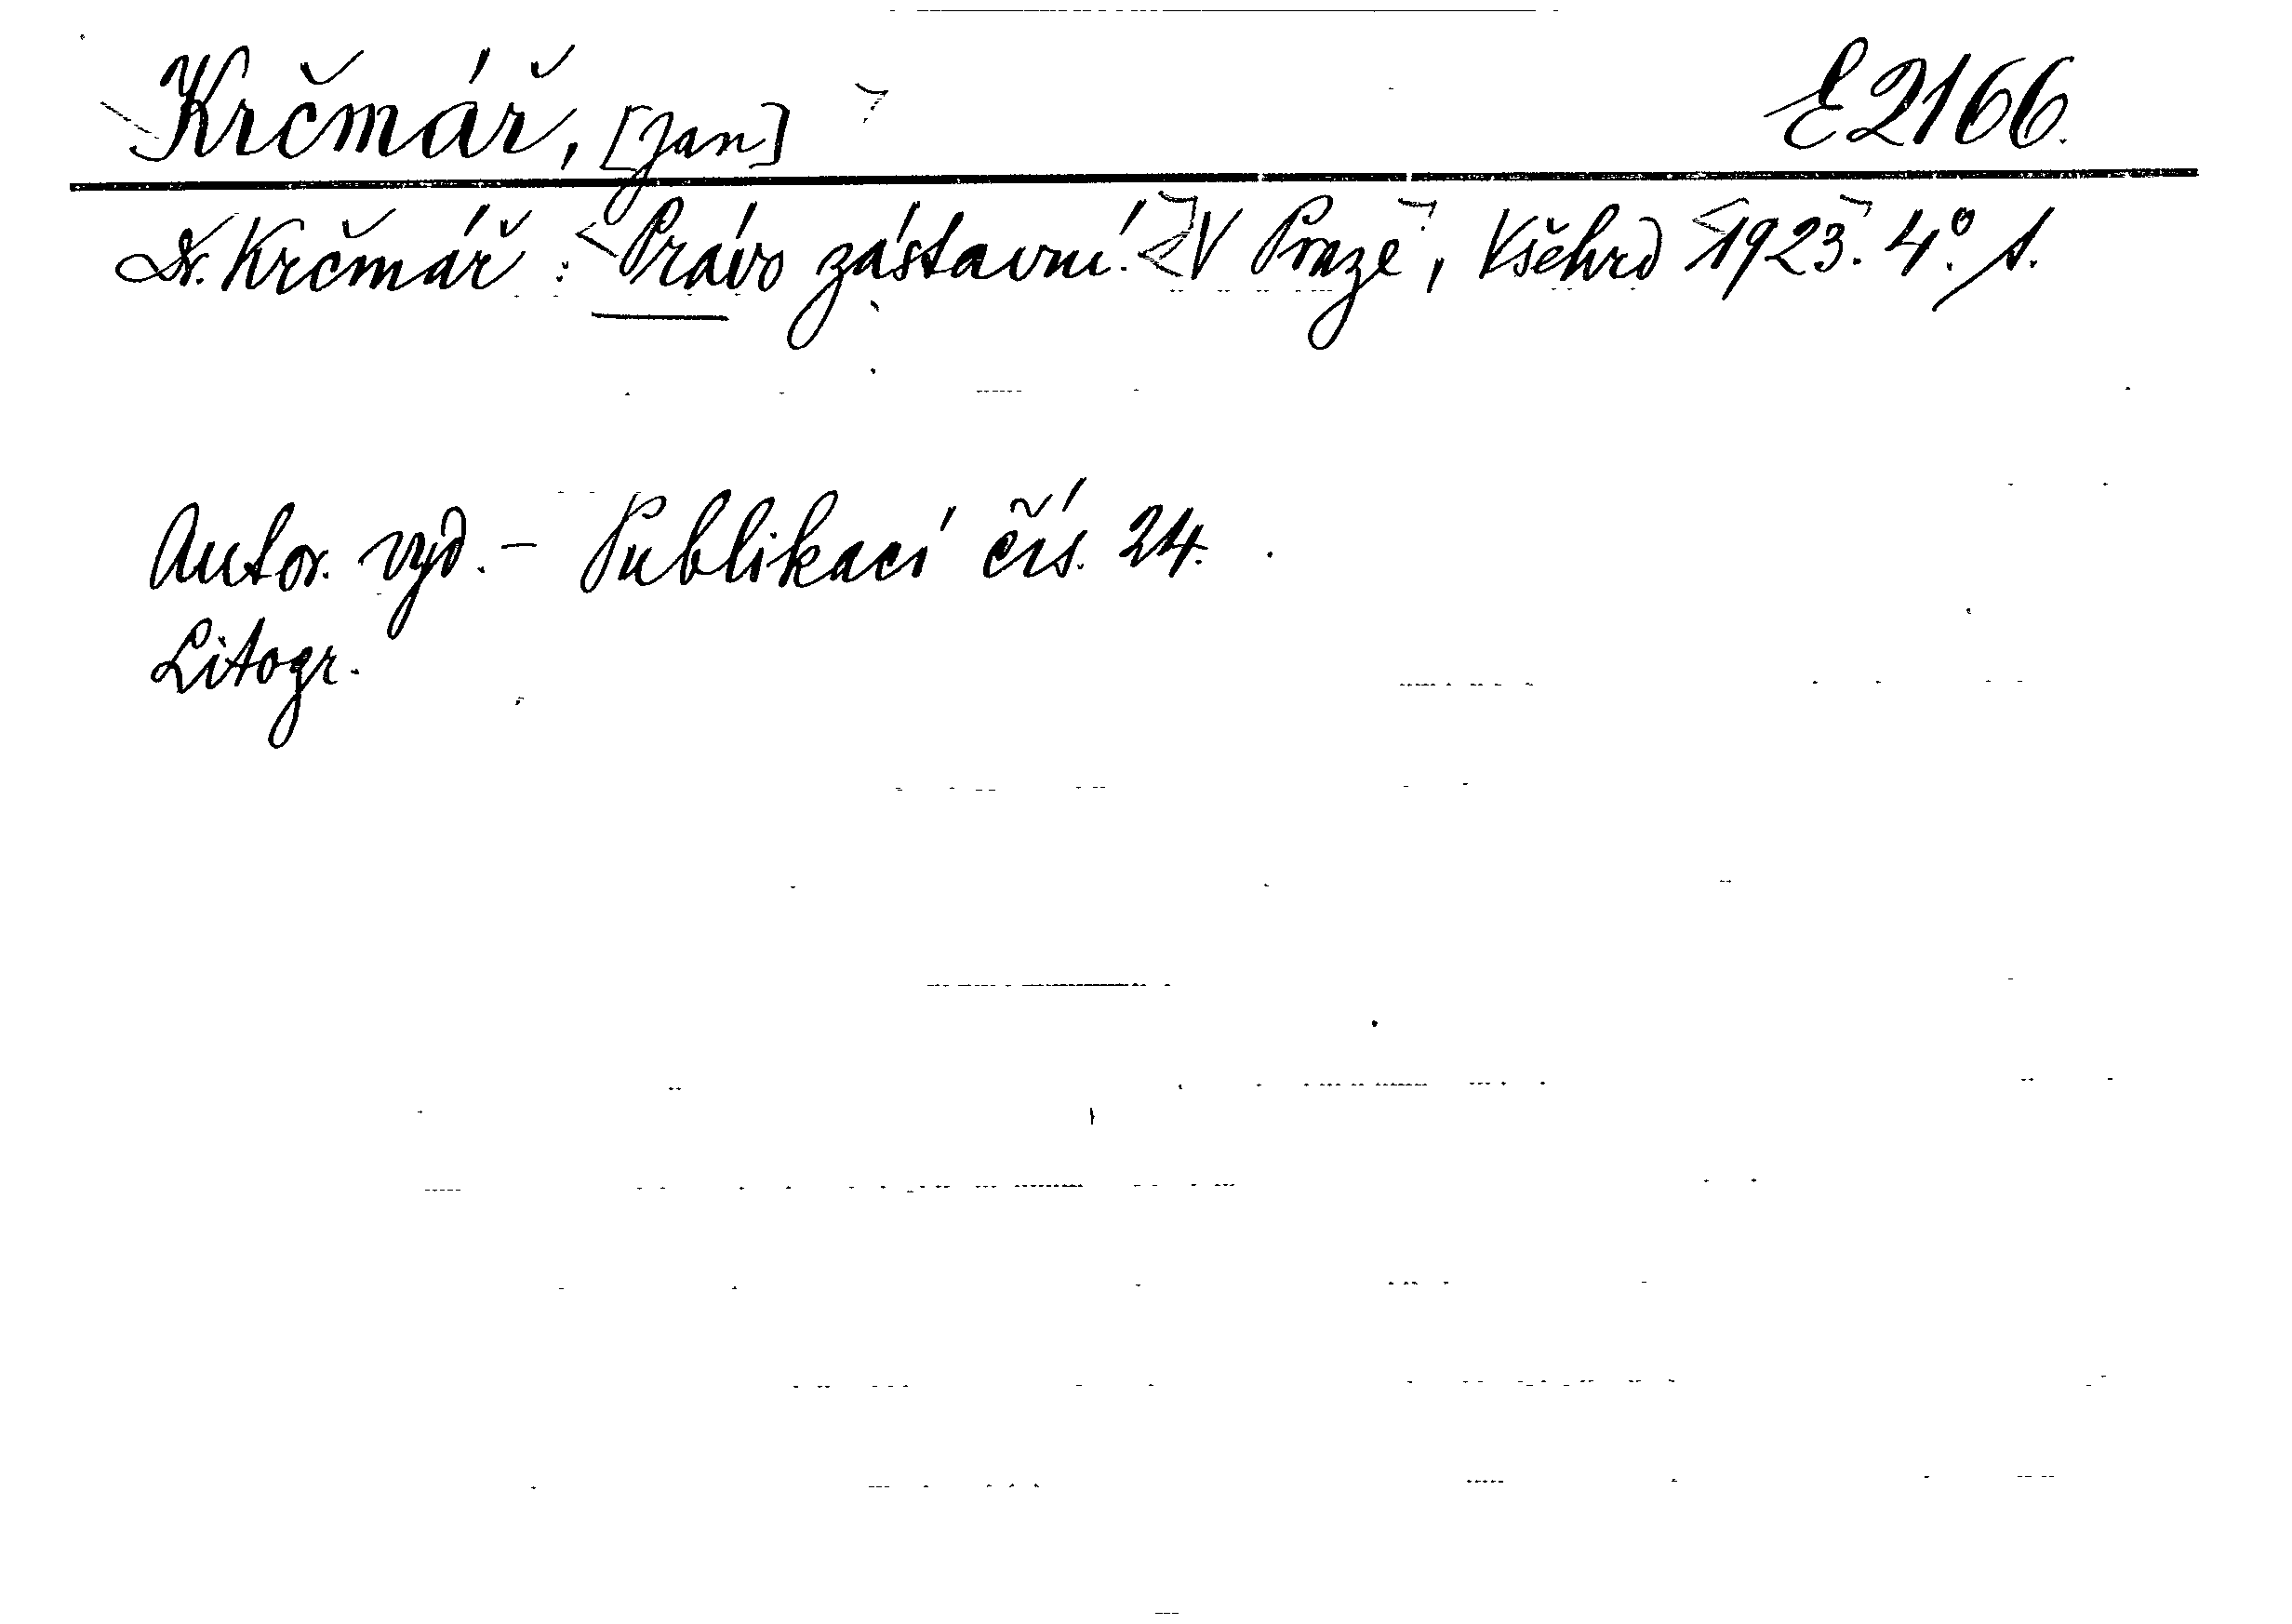 Krčmář, [Jan] E 2166.
Dr. Krčmář: Právo zástavní. V Praze, Všehrd 1923. 4°. s.
Autor. vyd. - Publikací čís. 24.
Litogr.